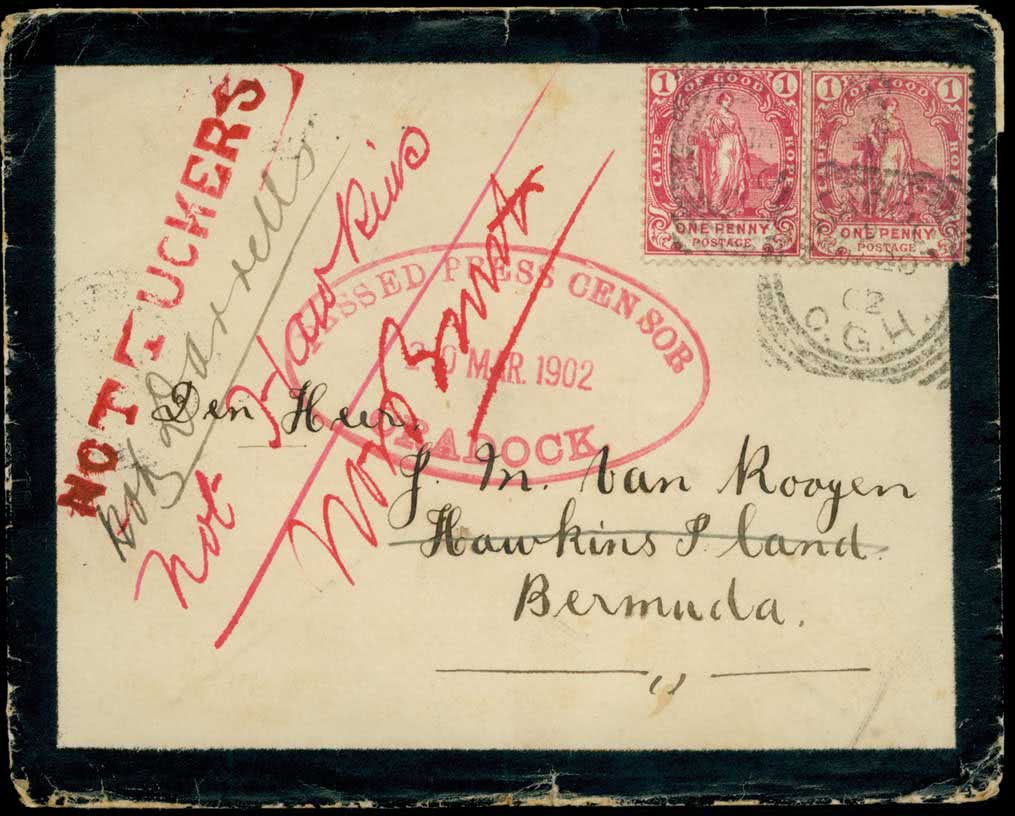 NOT TUCKERS
Not Darrells
Not Hawkins
Not Burts
1 OF GOOD 1
CAPE HOPE
ONE PENNY
POSTAGE
1 OF GOOD 1
CAPE HOPE
ONE PENNY
POSTAGE
02
C.G.H.
PASSED PRESS CENSOR
20 MAR. 1902
CRADOCK
Den Heer.
J. M. Van Rooyen
Hawkins Island
Bermuda.